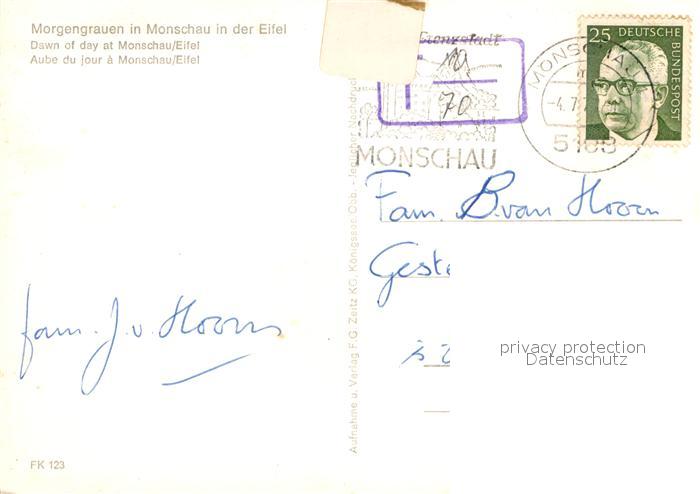 Morgengrauen in Monschau in der Eifel
Dawn of day at Monschau/Eifel
Aube du jour à Monschau/Eifel
Grenzstadt
T
10
70
MONSCHAU
MONSCHAU
-4.7.7
5108
25 DEUTSCHE
BUNDESPOST
Aufnahme u. Verlag F.G. Zeitz KG, Königssee/Obb. - Jeglicher Nachdruck
Fam. B. van Hoorn
Geste
is 2
fam. J. v. Hoorn
privacy protection
Datenschutz
FK 123